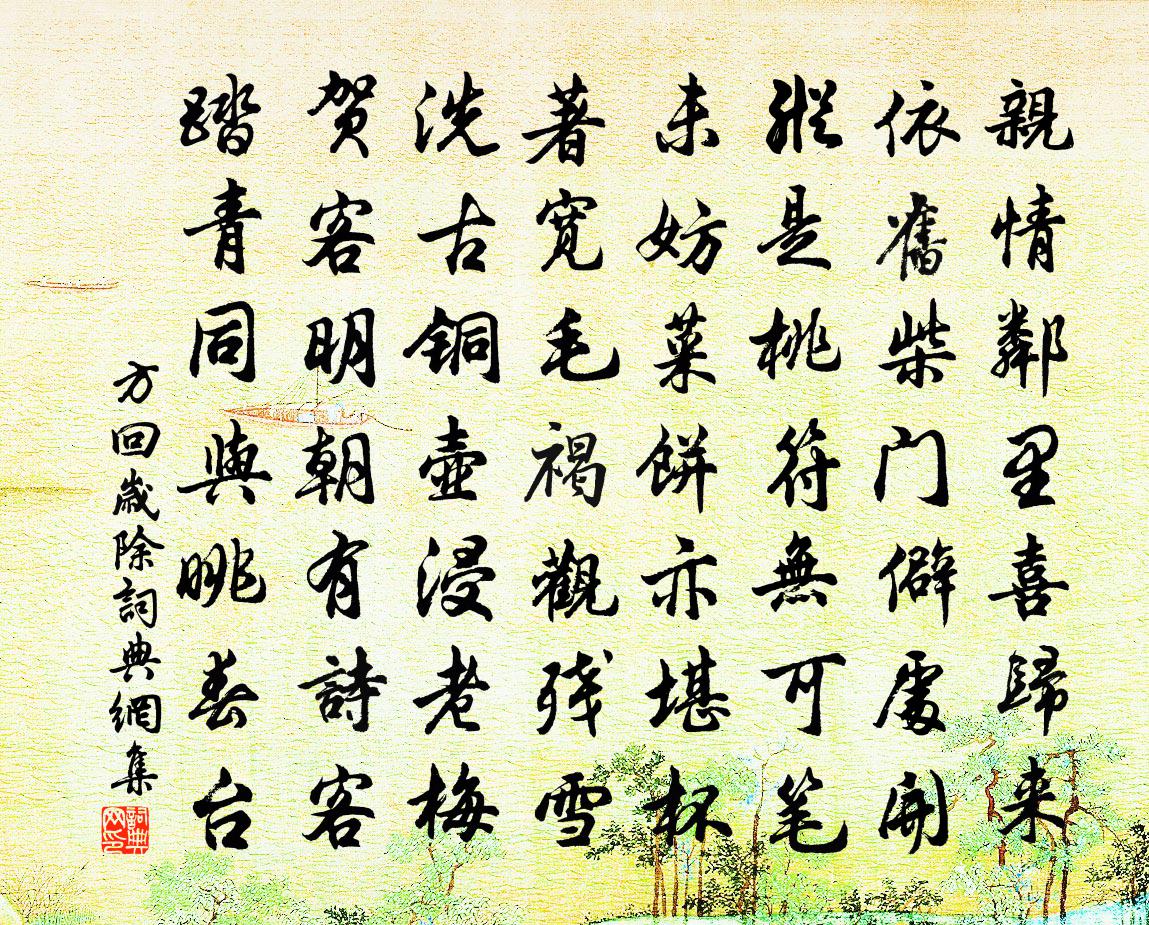 親情鄰里喜歸来
依舊柴门僻處開
縱是桃符無可笔
未妨菜餅亦堪杯
著寬毛褐觀残雪
洗古铜壺浸老梅
贺客明朝有詩客
踏青同與眺春台
方回歲除詞典網集
詞典网印